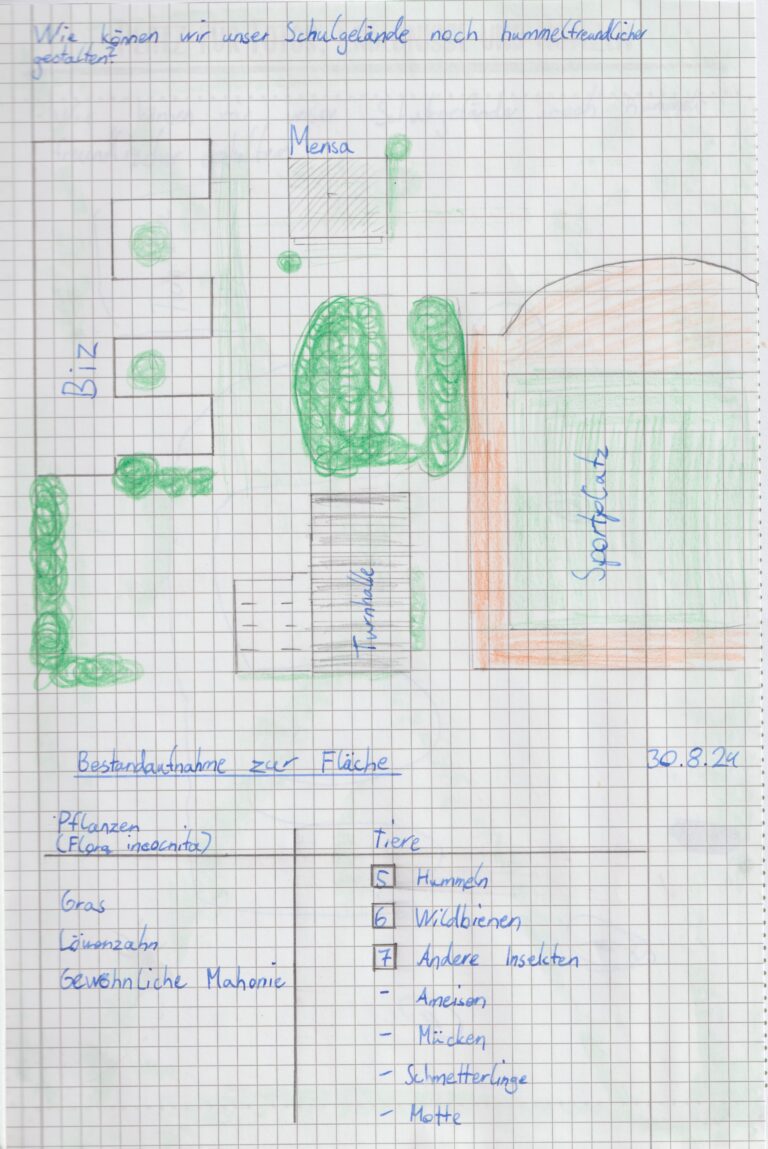 Wie können wir unser Schulgelände noch hummelfreundlicher
gestalten?
Mensa
Biz
Sportplatz
Turnhalle
Bestandaufnahme zur Fläche 30.8.24
Pflanzen
(Flora incocnita)
Tiere
5 Hummeln
Gras
6 Wildbienen
Löwenzahn
7 Andere Insekten
Gewöhnliche Mahonie
- Ameisen
- Mücken
- Schmetterlinge
- Motte